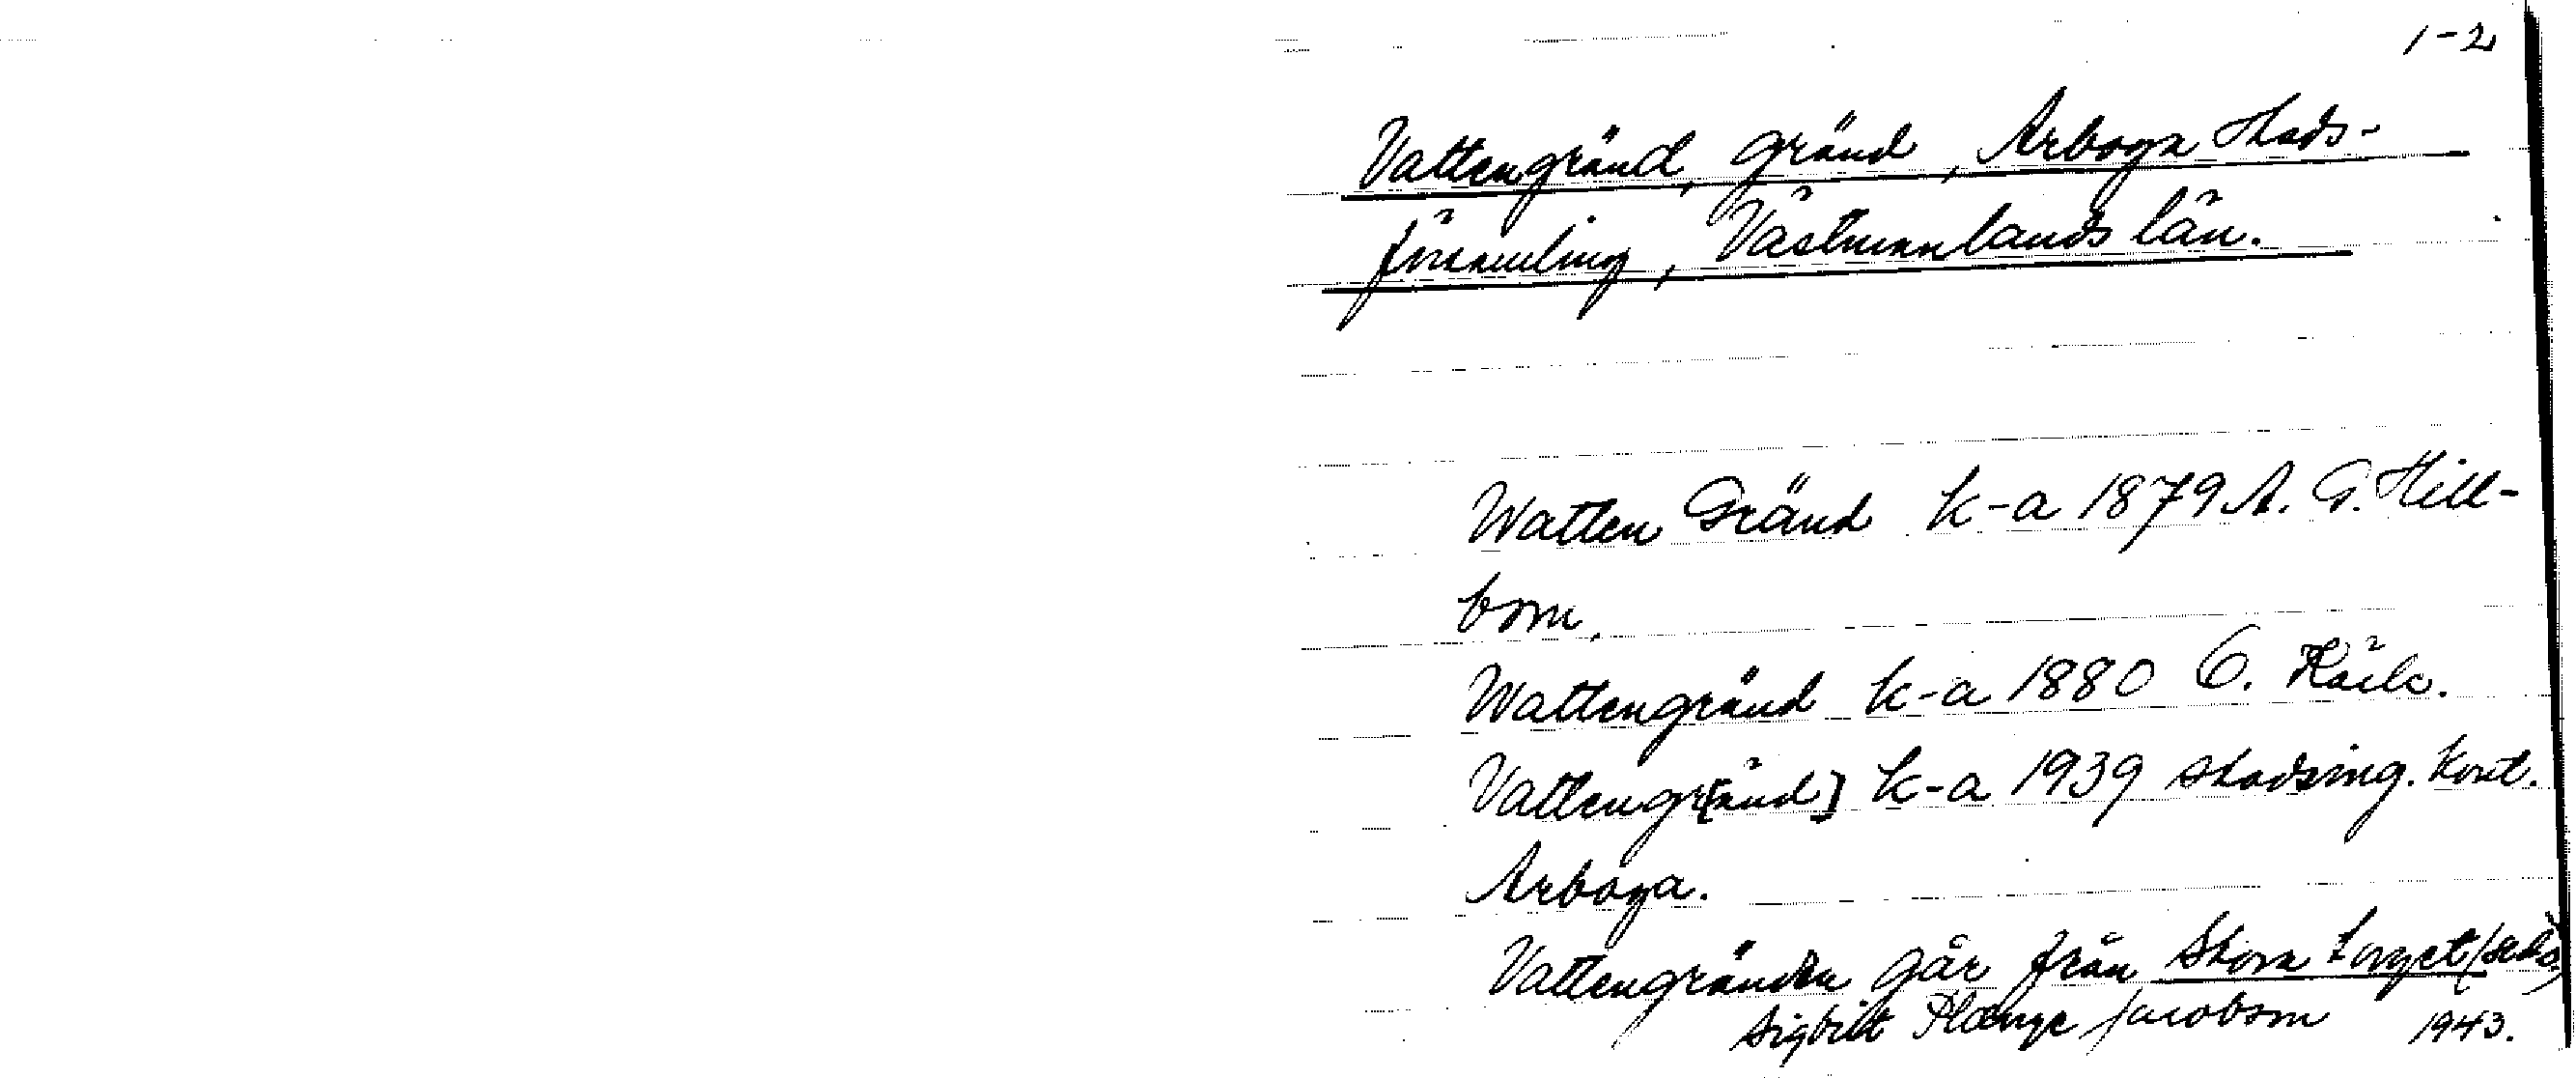 1-2
Vattengränd, gränd, Arboga stads-
församling, Västmanlands län.
Watten Gränd k-a 1879 A. G. Hill-
bom.
Wattengränd k-a 1880 C.
Vattengr[änd] k-a 1939 stadsing. kont.
Arboga.
Vattengränden går från Stora torget
Sigbrit Plænge Jacobson 1943.